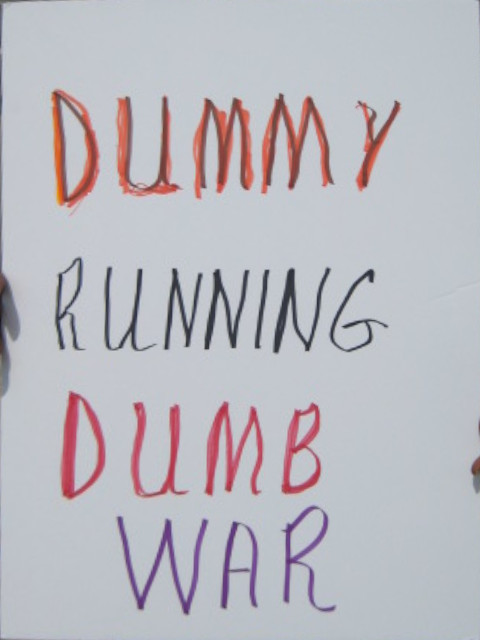 DUMMY
RUNNING
DUMB
WAR